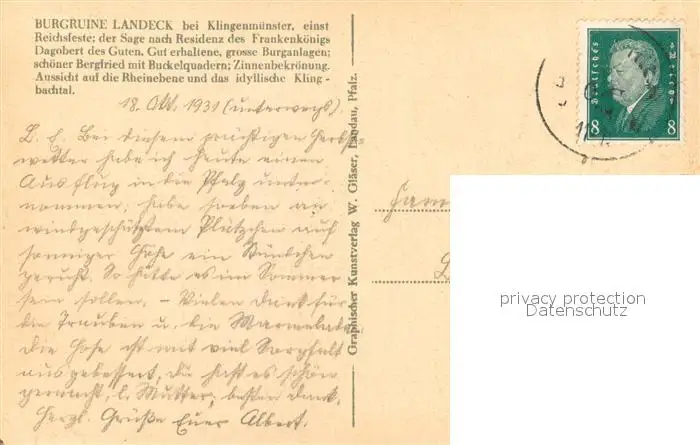 BURGRUINE LANDECK bei Klingenmünster, einst
Reichsfeste; der Sage nach Residenz des Frankenkönigs
Dagobert des Guten. Gut erhaltene, grosse Burganlagen;
schöner Bergfried mit Buckelquadern; Zinnenbekrönung.
Aussicht auf die Rheinebene und das idyllische Kling-
bachtal.
18. Okt. 1931 (unterwegs)
L. E. Bei diesem prächtigen Herbst
wetter habe ich heute einen
Ausflug in die Pfalz unter-
nommen, habe soeben an
windgeschütztem Plätzchen auf
sonniger Höhe ein Stündchen
geruht. So hätte es im Sommer
sein sollen. - Vielen Dank für
die Trauben u. die Marmelade.
Die Hose ist mit viel Sorgfalt
ausgebessert, die hast es schön
gemacht, l. Mutter, besten Dank.
Herzl. Grüße Euer Albert.
Graphischer Kunstverlag W. Gläser, Landau, Pfalz.
Deutsches Reich
8 8
Fam
privacy protection
Datenschutz